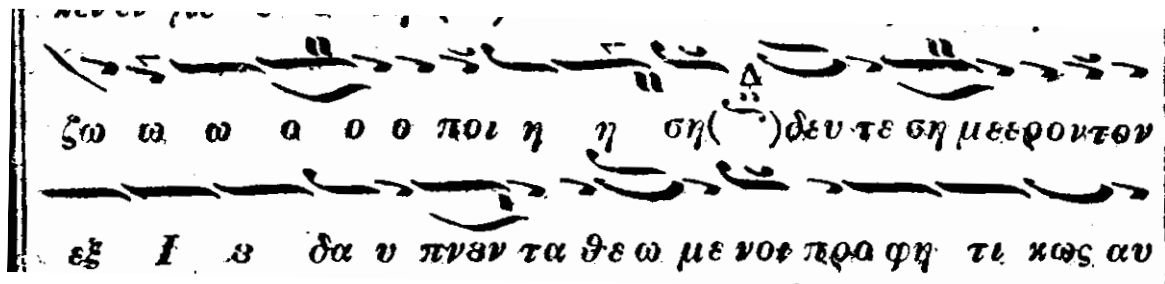 ζω ω ω α ο ο ποι η η ση( Δ )δευ τε ση με ε ρον τον
εξ Ι ȣ δα υ πνȣν τα θε ω με νοι προ φη τι κως αυ